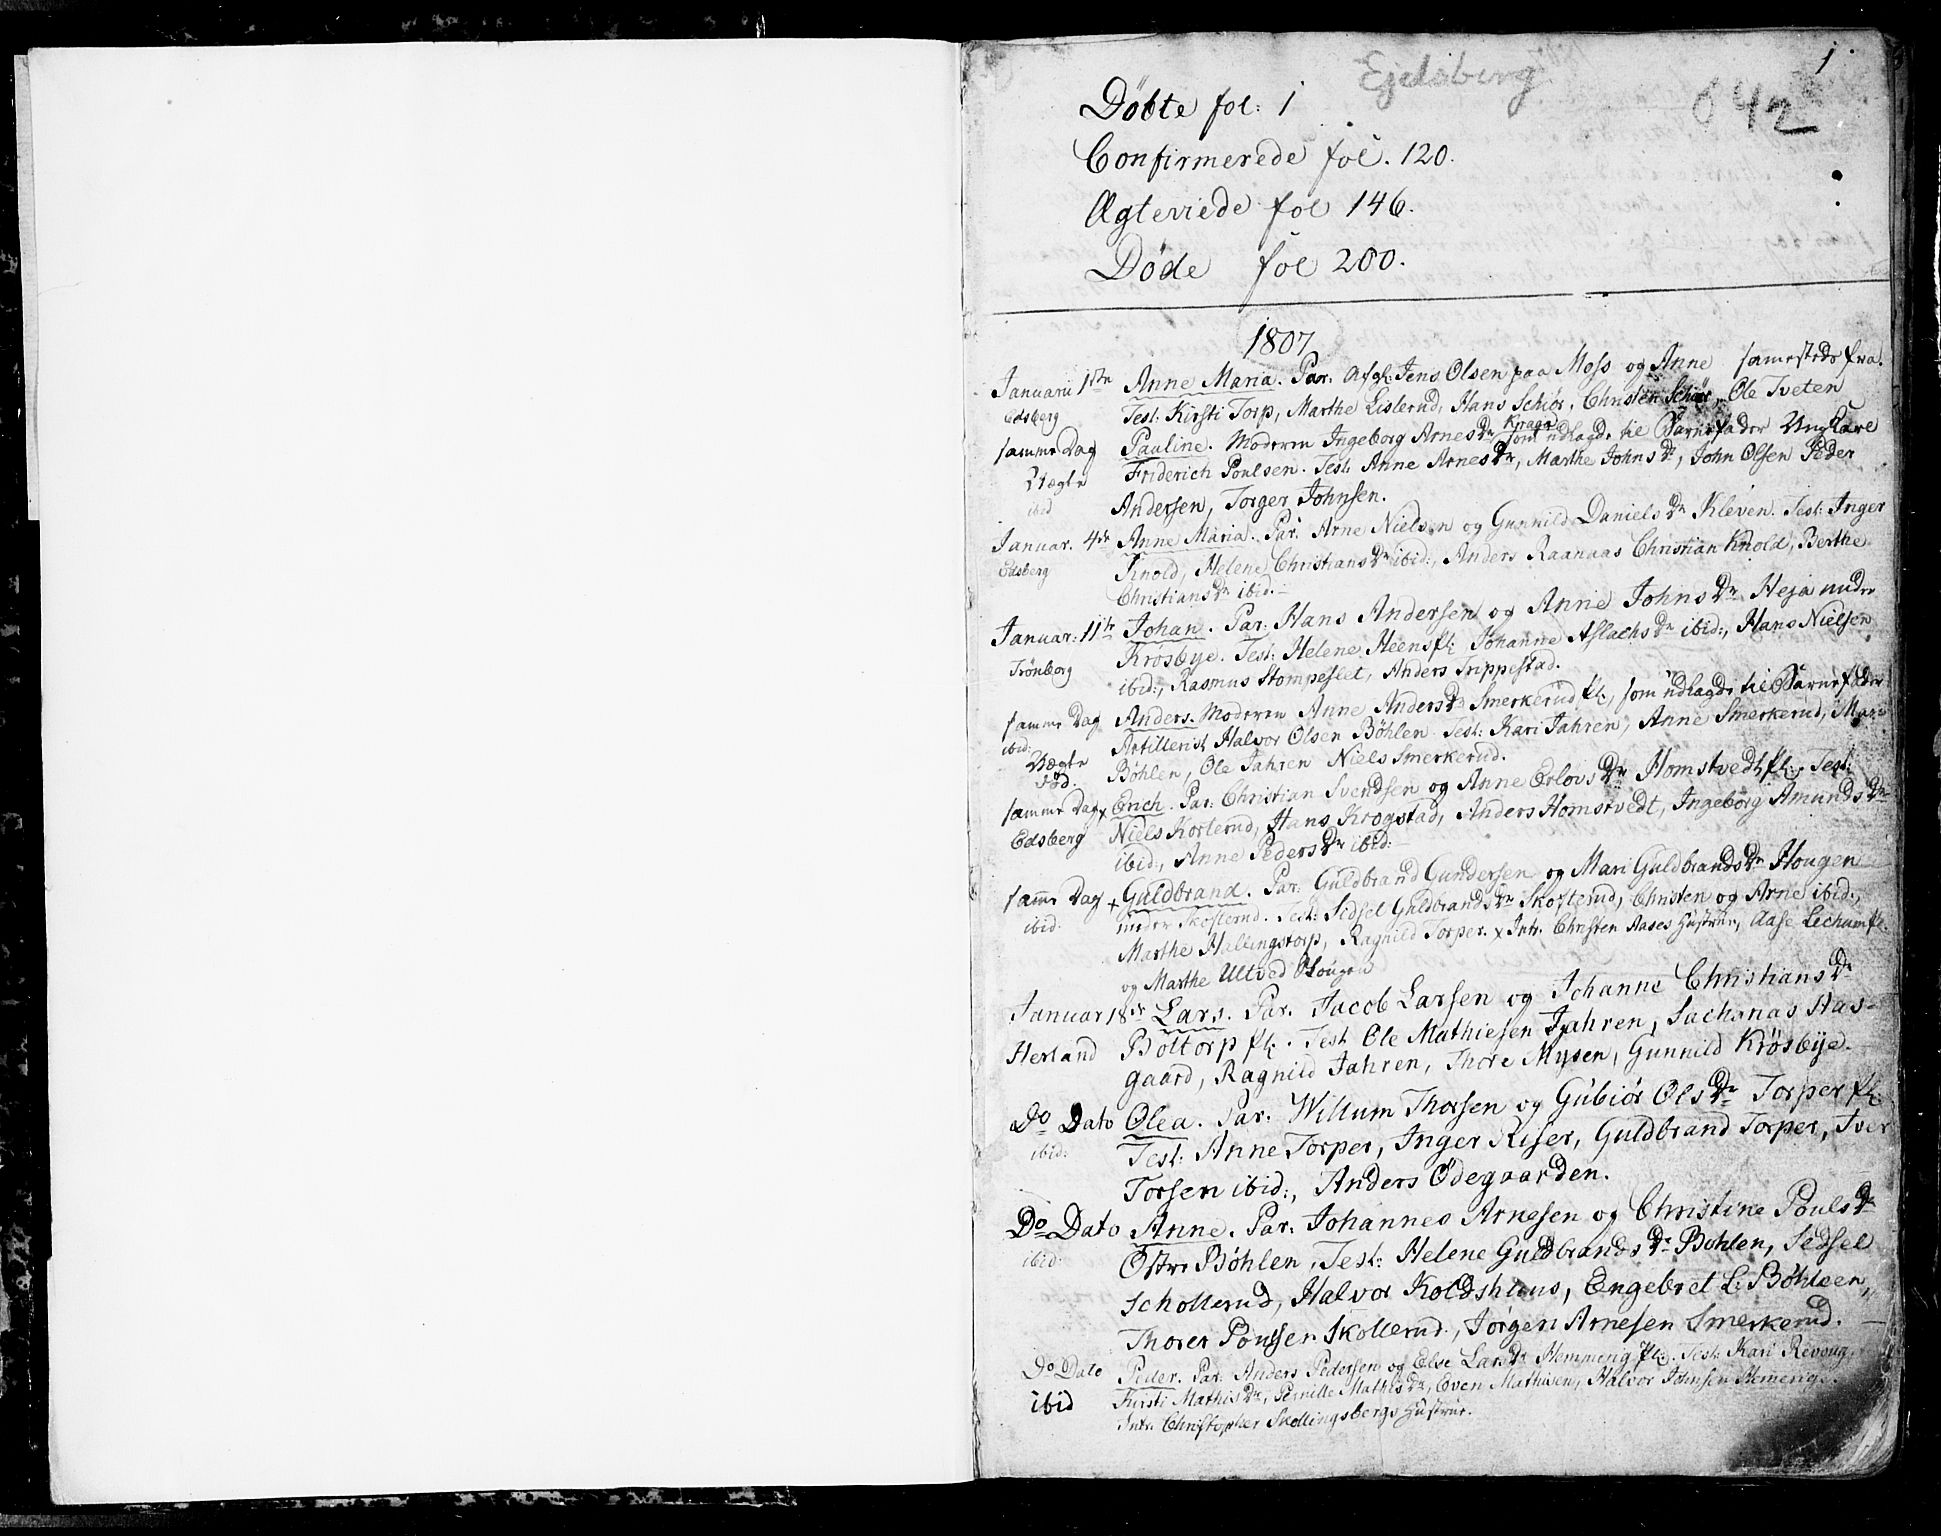 1.
Ejdsberg
642
Døbte fol: 1
Confirmerede fol. 120.
Ægteviede fol 146.
Døde fol 200.
1807
Januarii 1ste Anne Maria. Par. Afgl: Jens Olsen paa Moss og Anne samesteds fra.
Edsberg Test: Kirsti Torp, Marthe Lislerud, Hans Schiør, Christen Schiør, Ole Tveten
samme Dag Pauline. Moderen Ingeborg Arnes Dr Kraga som udlagde til Barnefader Ungkarl
Uægte Friderich Poulsen. Test: Anne Arnes Dr, Marthe Johns Dr, John Olsen Peder
ibid Andersen, Torger Johnsen.
Januar. 4de Anne Maria. Par. Arne Nielsen og Gunnild Daniels Dr Kleven. Test: Inger
Edsberg Knold, Helene Christians Dr ibid:, Anders Raanaas Christian Knold, Berthe
Christians Dr ibid.
Januar: 11te Johan. Par: Hans Andersen og Anne Johns Dr Heja under
Trönborg Krösbye. Test: Helene Heenspl: Johanne Aslachs Dr ibid:, Hans Nielsen
ibid:, Rasmus Stompeslet, Anders Trippestad.
samme Dag Anders. Moderen Anne Anders Dr Smerkerud pl:, som udlagde til Barnefader
ibid: Artillerist Halvor Olsen Böhlen. Test: Kari Jahren, Anne Smerkerud, Mari
Uægte Böhlen, Ole Jahren Niels Smerkerud.
død.
samme Dag x Erich. Par: Christian Svendsen og Anne Erlovs Dr Homstvedt pl:. Test:
Edsberg Niels Korterud, Hans Krogstad, Anders Homstvedt, Ingeborg Amunds Dr
ibid:, Anne Peders Dr ibid:
samme Dag + Guldbrand. Par: Guldbrand Gundersen og Mari Guldbrands Dr Hougen
ibid: under Skofterud. Test: Sidsel Guldbrands Dr Skofterud, Christen og Arne ibid:,
Marthe Hallingstorp, Ragnild Torper. x Intr. Christen Aases Hustrue, Aase Lechum pl:
og Marthe Ultved Hougen
Januar 18de Lars. Par. Jacob Larsen og Johanne Christians Dr
Herland Böltorp pl:. Test Ole Mathiesen Jahren, Sacharias Has-
gaard, Ragnild Jahren, Thore Mysen, Gunnild Krøsbye.
Do Dato Olea. Par. Willum Thorsen og Gubiør Ols Dr Torper pl:
ibid: Test: Anne Torper, Inger Riser, Guldbrand Torper, Iver
Torsen ibid:, Anders Ødegaarden.
Do Dato Anne. Par: Johannes Arnesen og Christine Pouls Dr
ibid: Østre Bøhlen, Test: Helene Guldbrands Dr Bohlen, Sedsel
Schollerud, Halvor Koldshuus, Engebret L: Böhleen,
Thorer Poulsen Skollerud, Jørgen Arnesen Smerkerud.
Do Dato Peder. Par: Anders Pedersen og Else Lars Dr Hemming pl:. Test: Kari Revoug,
ibid Kirsti Mathis Dr, Pernille Mathis Dr, Even Mathisen, Halvor Johnsen Hemmig.
Intr. Christopher Skollingsbergs Hustrue.